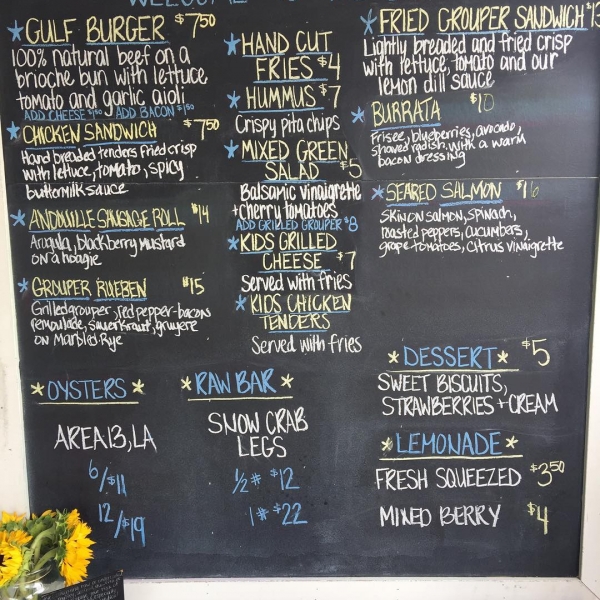 WELCOME
GULF BURGER $7⁵⁰
100% natural beef on a
brioche bun with lettuce
tomato and garlic aioli
ADD CHEESE $1⁵⁰ ADD BACON $1⁵⁰
CHICKEN SANDWICH $7⁵⁰
Hand breaded tenders fried crisp
with lettuce, tomato, spicy
buttermilk sauce
ANDOUILLE SAUSAGE ROLL $14
Arugula, blackberry mustard
on a hoagie
GROUPER RUEBEN $15
Grilled grouper, red pepper-bacon
remoulade, sauerkraut, gruyere
on Marbled Rye
HAND CUT
FRIES $4
HUMMUS $7
Crispy pita chips
MIXED GREEN
SALAD $5
Balsamic vinaigrette
+ cherry tomatoes
ADD GRILLED GROUPER $8
KIDS GRILLED
CHEESE $7
Served with fries
KIDS CHICKEN
TENDERS
Served with fries
FRIED GROUPER SANDWICH $13
Lightly breaded and fried crisp
with lettuce, tomato and our
lemon dill sauce
BURRATA $10
Frisee, blueberries, avocado,
shaved radish, with a warm
bacon dressing
SEARED SALMON $16
Skin on salmon, spinach,
roasted peppers, cucumbers,
grape tomatoes, citrus vinaigrette
*OYSTERS*
AREA 13, LA
6/$11
12/$19
*RAW BAR*
SNOW CRAB
LEGS
½# $12
1# $22
*DESSERT* $5
SWEET BISCUITS,
STRAWBERRIES + CREAM
*LEMONADE*
FRESH SQUEEZED $3⁵⁰
MIXED BERRY $4